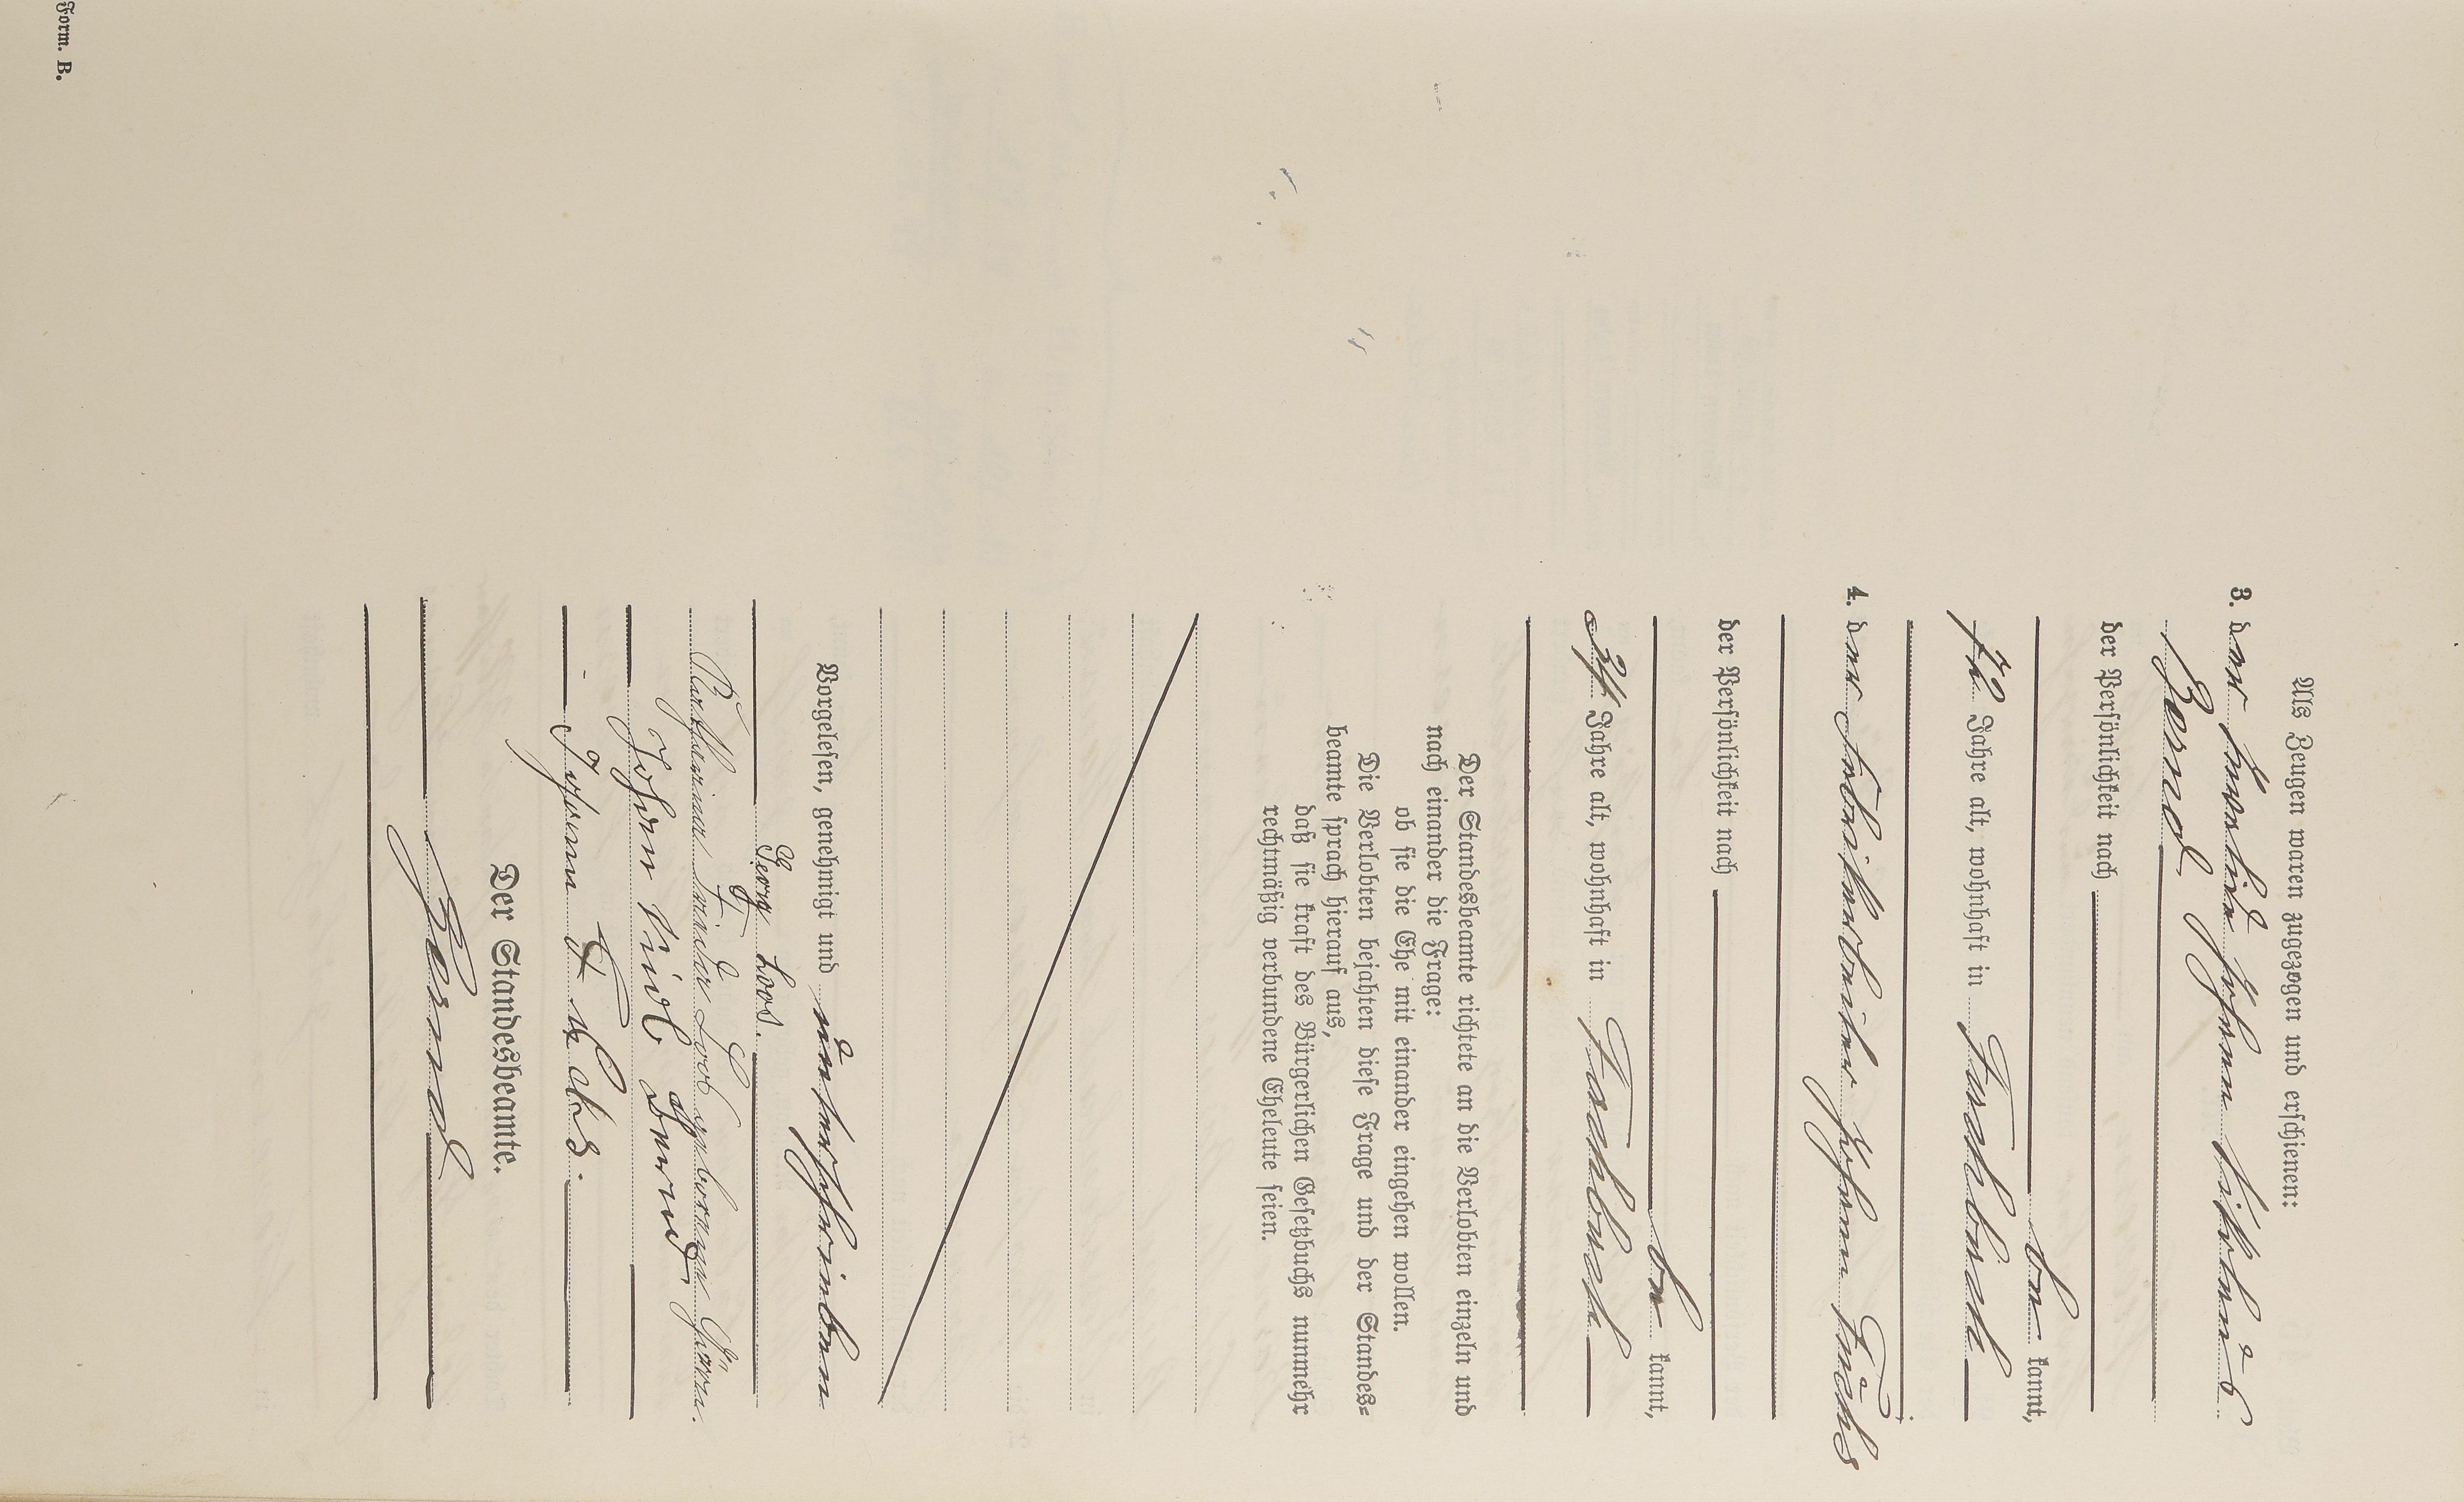 Als Zeugen waren zugezogen und erschienen:
3. der Invalide Johann Nikolaus
Bernd
der Persönlichkeit nach
be kannt,
72 Jahre alt, wohnhaft in Fischbach
4. der Fabrikarbeiter Johann Fuchs
der Persönlichkeit nach
be kannt,
34 Jahre alt, wohnhaft in Fischbach
Der Standesbeamte richtete an die Verlobten einzeln und
nach einander die Frage:
ob sie die Ehe mit einander eingehen wollen.
Die Verlobten bejahten diese Frage und der Standes-
beamte sprach hierauf aus,
daß sie kraft des Bürgerlichen Gesetzbuchs nunmehr
rechtmäßig verbundene Eheleute seien.
Vorgelesen, genehmigt und unterschrieben
Georg Loos.
Katharina Loos geborene
Johan Bernd
Johann Fuchs.
Der Standesbeamte.
Bernd
Form. B.